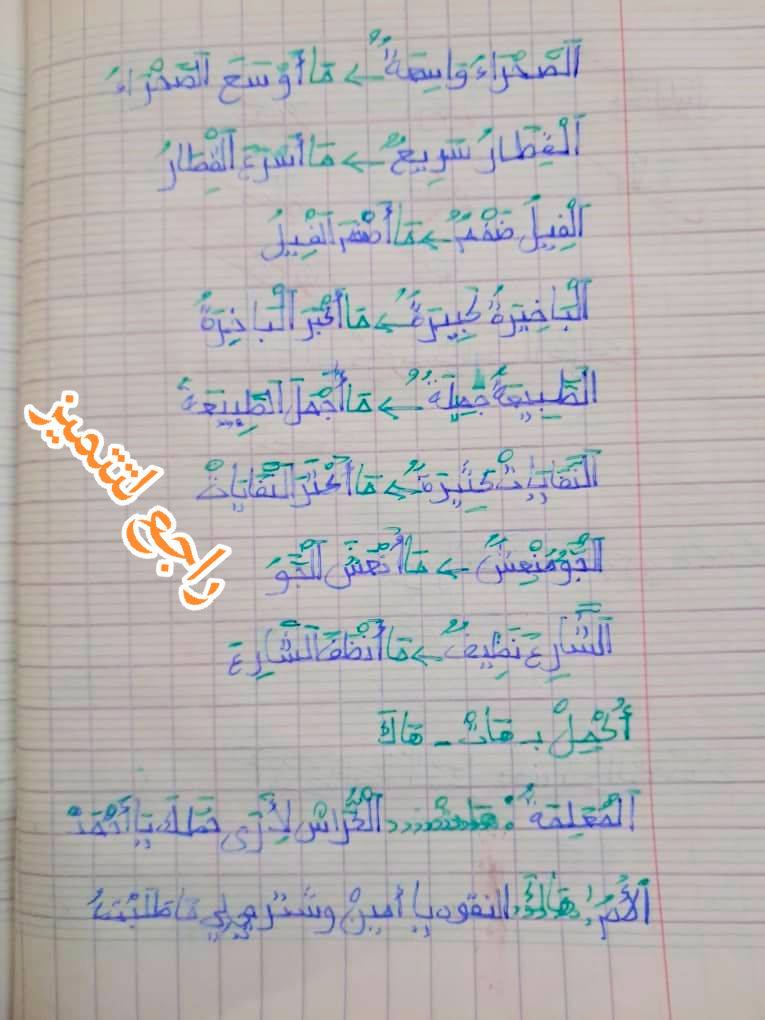 الصَّحْرَاءُ وَاسِعَةٌ ← مَا أَوْسَعَ الصَّحْرَاءَ
الْقِطَارُ سَرِيعٌ ← مَا أَسْرَعَ الْقِطَارُ
الْفِيلُ ضَخْمٌ ← مَا أَضْخَمَ الْفِيلُ
الْبَاخِيرَةُ كَبِيرَةٌ ← مَا أَكْبَرَ الْبَاخِرَةُ
الطَّبِيعَةُ جَمِيلَةٌ ← مَا أَجْمَلَ الطَّبِيعَةُ
النِّفَايَاتُ كَثِيرَةٌ ← مَا أَكْثَرَ النِّفَايَاتُ
الجَوُّ مُنْعِشٌ ← مَا أَنْعَشَ الْجَوُ
الشَّارِعَ نَظِيفٌ ← مَا أَنْظَفَ الشَّارِعَ
أُكْمِلُ بـ هَاتْ - هَاكَ
الْمُعَلِمَةُ: هَاتْ الْكُرَّاسْ لِأَرَى خَطَكَ يَا أَحْمَدْ
الْأُمُّ: هَاكَ النقود يا أمينْ وشترِي لِي مَا طَلَبْتُهُ
راجع لتتميز